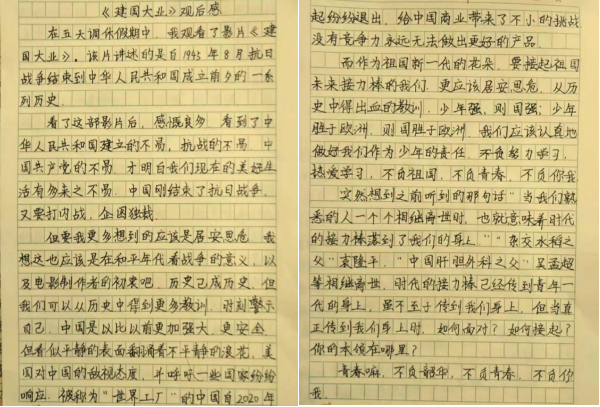 《建国大业》观后感
在五天调休假期中，我观看了影片《建
国大业》。该片讲述的是自1945年8月抗日
战争结束到中华人民共和国成立前夕的一系
列历史。
看了这部影片后，感慨良多，看到了中
华人民共和国建立的不易，抗战的不易，中
国共产党的不易，才明白我们现在的美好生
活有多来之不易。中国刚结束了抗日战争，
又要打内战，企图独裁。
但要我更多想到的应该是居安思危，我
想这也应该是在和平年代看战争的意义，以
及电影制作者的初衷吧，历史已成历史，但
我们可以从历史中得到更多教训，时刻警示
自己，中国是以比以前更加强大，更安全，
但看似平静的表面翻涌着不平静的浪花，美
国对中国的敌视态度，并呼吁一些国家纷纷
响应，被称为“世界工厂”的中国自2020年
起纷纷退出，给中国商业带来了不小的挑战，
没有竞争力永远无法做出更好的产品。
而作为祖国新一代的花朵，要接起祖国
未来接力棒的我们，更应该居安思危，从历
史中得出血的教训，少年强，则国强；少年
胜于欧洲，则国胜于欧洲，我们应该认真地
做好我们作为少年的责任，不负努力学习，
热爱学习，不负祖国，不负青春，不负你我。
突然想到之前听到的那句话“当我们熟
悉的人一个个相继离世时，也就意味着时代
的接力棒落到了我们的身上。”“杂交水稻之
父”袁隆平，“中国肝胆外科之父”吴孟超
等相继离世，时代的接力棒已经传到青年一
代的身上，虽不至于传到我们身上，但当真
正传到我们身上时，如何面对？如何接起？
你的本领在哪里？
青春嘛，不负韶华，不负青春，不负你
我。